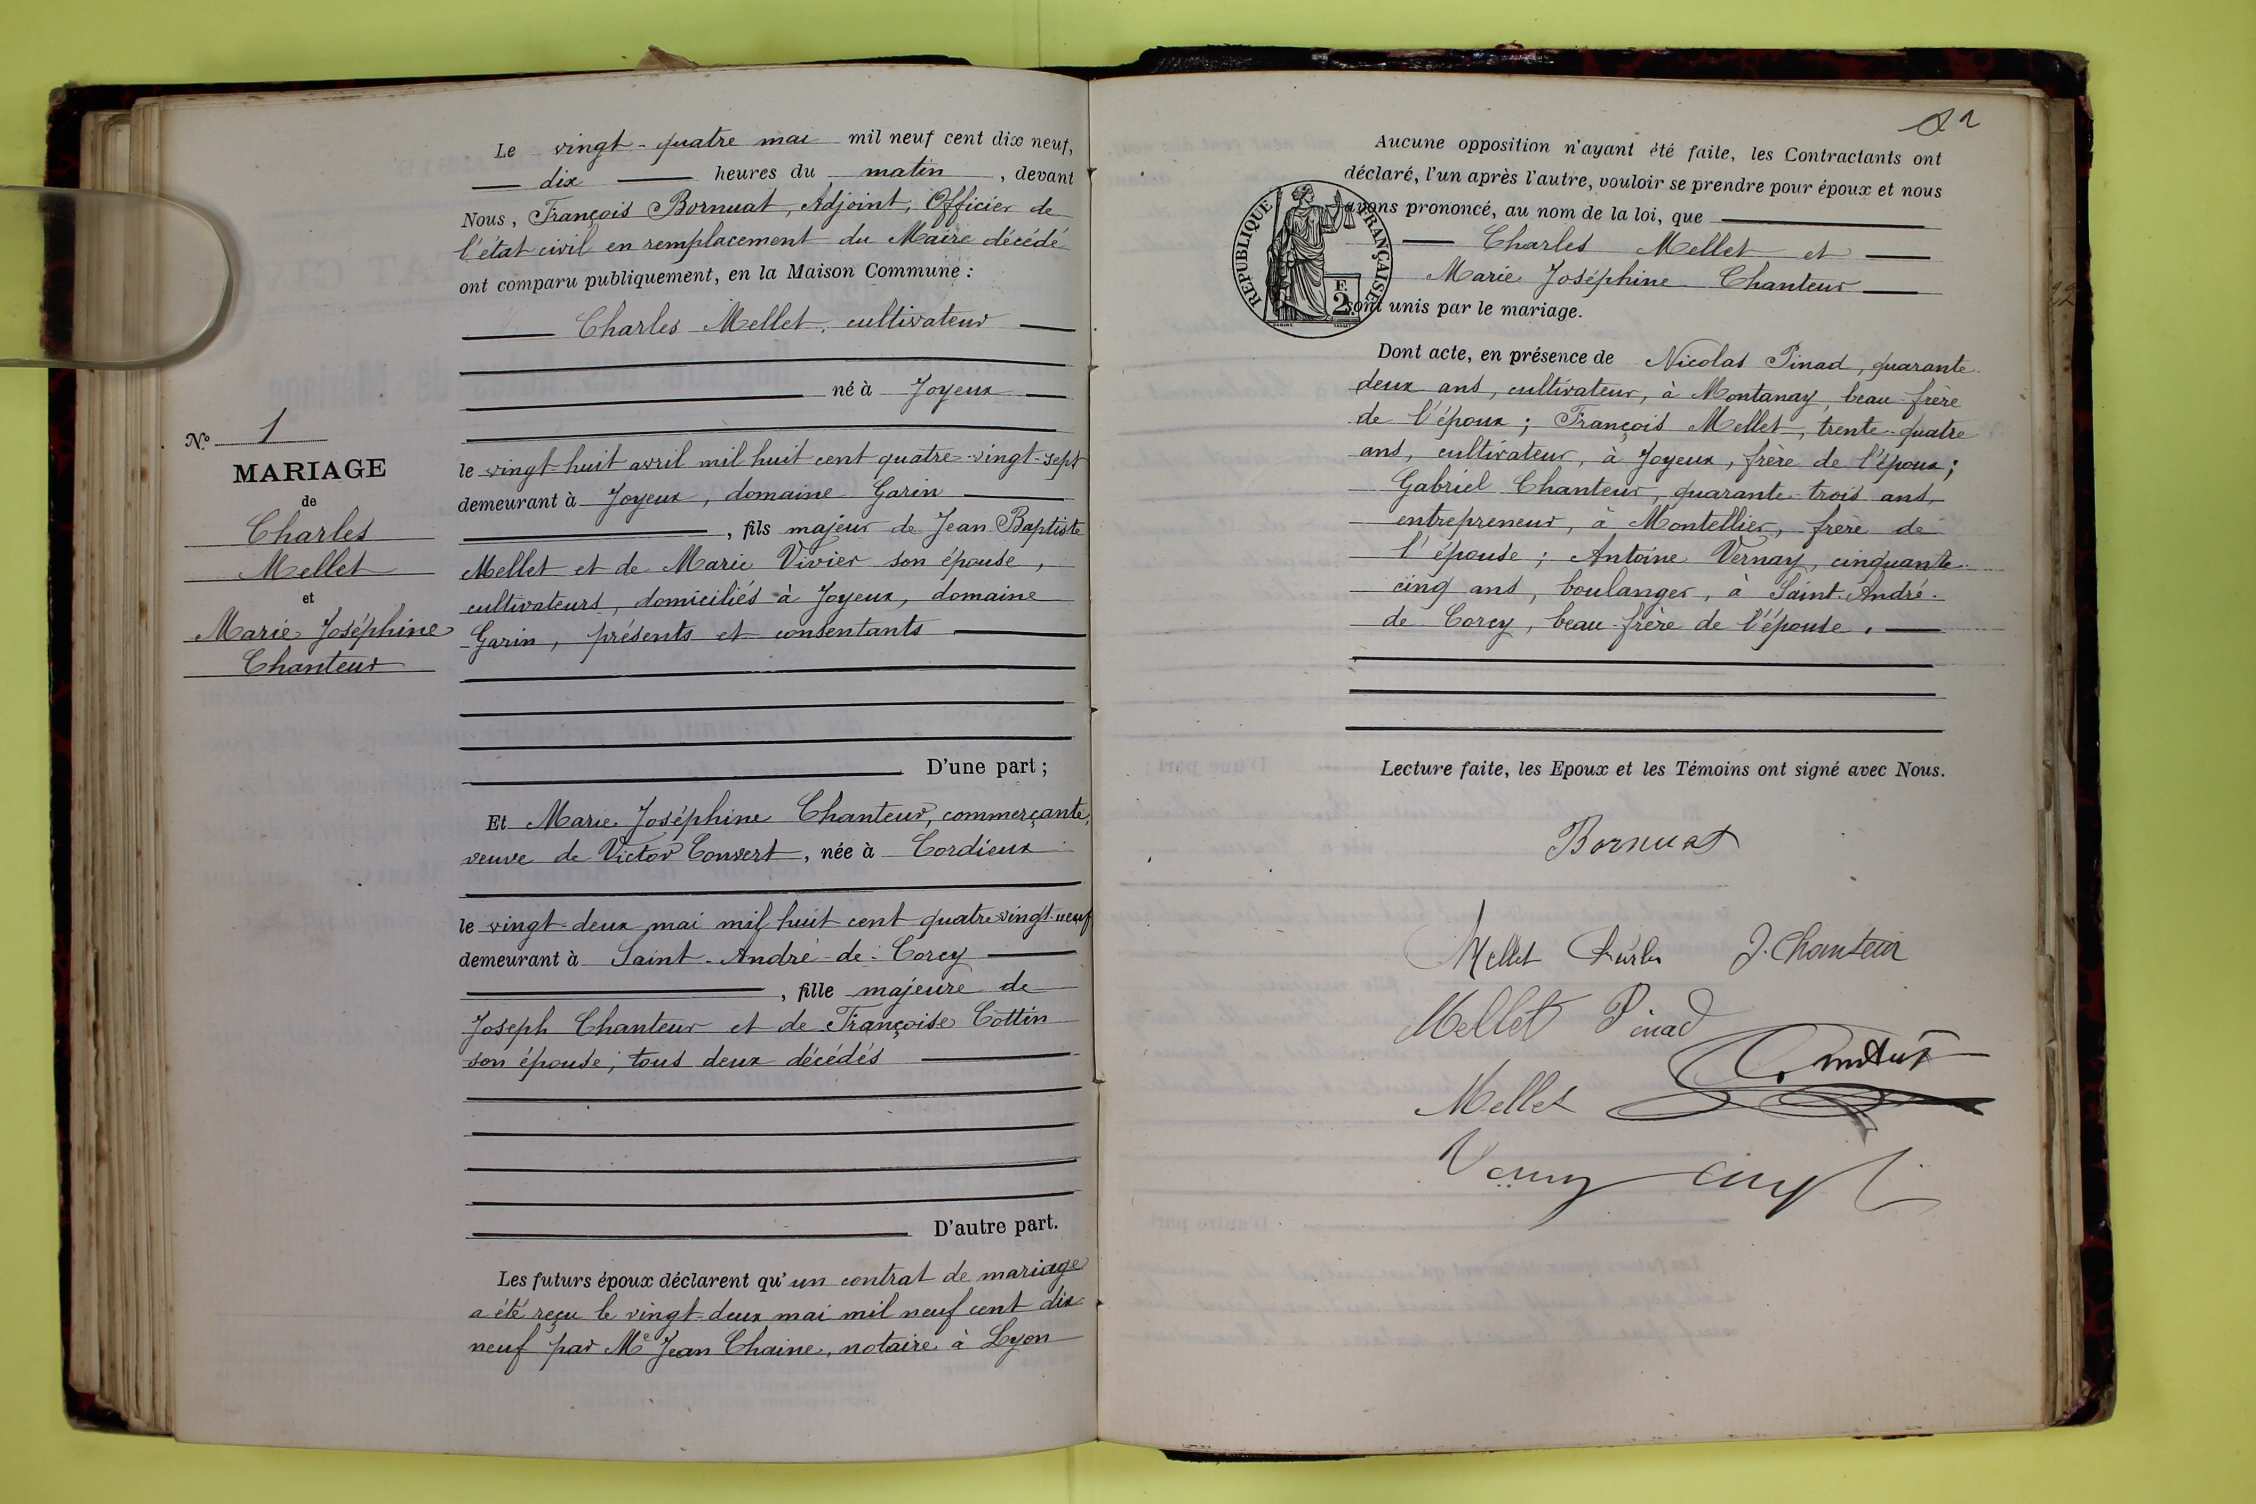 Le vingt-quatre mai mil neuf cent dix neuf,
dix heures du matin, devant
Nous, François Bornuat, Adjoint, Officier de
l'état civil en remplacement du Maire décédé
ont comparu publiquement, en la Maison Commune :
Charles Mellet, cultivateur
né à Joyeux
le vingt-huit avril mil huit cent quatre-vingt-sept
demeurant à Joyeux, domaine Garin
, fils majeur de Jean Baptiste
Mellet et de Marie Vivier son épouse,
cultivateurs, domiciliés à Joyeux, domaine
Garin, présents et consentants
D'une part ;
Et Marie Joséphine Chanteur, commerçante,
veuve de Victor Convert, née à Cordieux
le vingt-deux mai mil huit cent quatre vingt-neuf
demeurant à Saint-André-de-Corcy
, fille majeure de
Joseph Chanteur et de Françoise Cottin
son épouse, tous deux décédés
D'autre part.
Les futurs époux déclarent qu'un contrat de mariage
a été reçu le vingt-deux mai mil neuf cent dix-
neuf par Me Jean Chaine, notaire à Lyon
No 1
MARIAGE
de
Charles
Mellet
et
Marie Joséphine
Chanteur
Aucune opposition n'ayant été faite, les Contractants ont
déclaré, l'un après l'autre, vouloir se prendre pour époux et nous
avons prononcé, au nom de la loi, que
Charles Mellet et
Marie Joséphine Chanteur
sont unis par le mariage.
RÉPUBLIQUE FRANÇAISE
F.
2
Dont acte, en présence de Nicolas Pinad, quarante-
deux ans, cultivateur, à Montanay, beau-frère
de l'époux ; François Mellet, trente-quatre
ans, cultivateur, à Joyeux, frère de l'époux ;
Gabriel Chanteur, quarante-trois ans,
entrepreneur, à Montellier, frère de
l'épouse ; Antoine Vernay, cinquante-
cinq ans, boulanger, à Saint-André-
de Corcy, beau-frère de l'épouse.
Lecture faite, les Epoux et les Témoins ont signé avec Nous.
Bornuat
Mellet Charles J. Chanteur
Mellet Pinad
Mellet